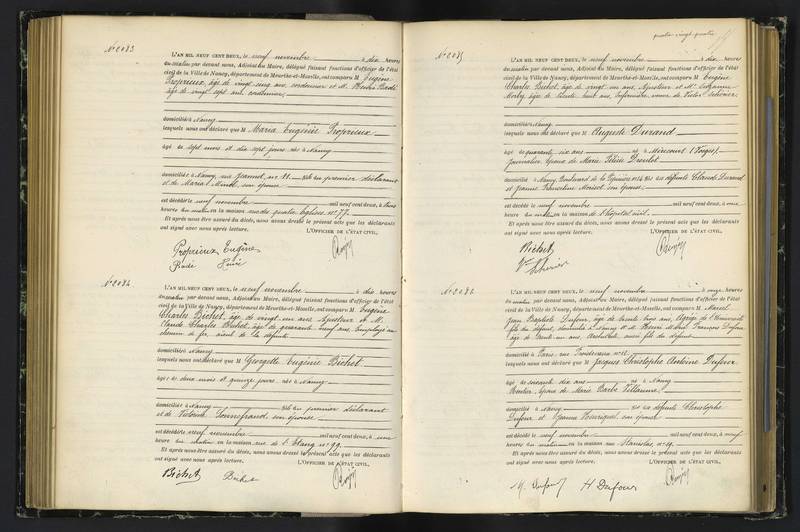 No 2083
L'AN MIL NEUF CENT DEUX, le neuf novembre à dix heures
du matin par devant nous, Adjoint au Maire, délégué faisant fonctions d'officier de l'état
civil de la Ville de Nancy, département de Meurthe-et-Moselle, ont comparu M Eugène
Proprieux, âgé de vingt cinq ans, cordonnier et M.
âgé de vingt sept ans cordonnier,
domiciliés à Nancy
lesquels nous ont déclaré que M Maria Eugénie Proprieux
âgé de sept mois et dix sept jours né à Nancy
domicilié à Nancy, rue Jeannot, no 11 fils du premier déclarant
et de Maria son épouse
est décédé le neuf novembre mil neuf cent deux, à
heures du matin en la maison rue des quatre Eglises, no 77.
Et après nous être assuré du décès, nous avons dressé le présent acte que les déclarants
ont signé avec nous après lecture. L'OFFICIER DE L'ÉTAT CIVIL,
Proprieux Eugène
No 2084
L'AN MIL NEUF CENT DEUX, le neuf novembre à dix heures
du matin par devant nous, Adjoint au Maire, délégué faisant fonctions d'officier de l'état
civil de la Ville de Nancy, département de Meurthe-et-Moselle, ont comparu M Eugène
Charles Bichet, âgé de vingt un ans, ajusteur et M.
Claude Charles Bichet, âgé de quarante neuf ans, employé au
chemin de fer, aïeul de la défunte
domiciliés à Nancy
lesquels nous ont déclaré que M Georgette Eugénie Bichet
âgé de deux mois et quinze jours né à Nancy
domicilié à Nancy fils du premier déclarant
et de Victorine son épouse
est décédé le neuf novembre mil neuf cent deux, à une
heure du matin en la maison rue de l'Etang no 99.
Et après nous être assuré du décès, nous avons dressé le présent acte que les déclarants
ont signé avec nous après lecture. L'OFFICIER DE L'ÉTAT CIVIL,
Bichet Bichet
quatre-vingt-quatre
No 2085
L'AN MIL NEUF CENT DEUX, le neuf novembre à dix heures
du matin par devant nous, Adjoint au Maire, délégué faisant fonctions d'officier de l'état
civil de la Ville de Nancy, département de Meurthe-et-Moselle, ont comparu M Eugène
Charles Bichet, âgé de vingt un ans, ajusteur et Me Suzanne
âgée de trente huit ans, infirmière, veuve de Victor
domiciliés à Nancy
lesquels nous ont déclaré que M Auguste Durand
âgé de quarante six ans né à Mirecourt (Vosges)
journalier, époux de Marie
domicilié à Nancy, Boulevard de la Pépinière fils des défunts Claude Durand
et Jeanne son épouse
est décédé le neuf novembre mil neuf cent deux, à une
heure du matin en la maison de l'hôpital civil.
Et après nous être assuré du décès, nous avons dressé le présent acte que les déclarants
ont signé avec nous après lecture. L'OFFICIER DE L'ÉTAT CIVIL,
Bichet
Vve
No 2086
L'AN MIL NEUF CENT DEUX, le neuf novembre à onze heures
du matin par devant nous, Adjoint au Maire, délégué faisant fonctions d'officier de l'état
civil de la Ville de Nancy, département de Meurthe-et-Moselle, ont comparu M Marcel
Jean Baptiste Dufour, âgé de trente trois ans, Agrégé de l'Université
fils du défunt, domicilié à Nancy et M. Henri François Dufour
âgé de trente un ans, architecte, aussi fils du défunt
domicilié à Paris, rue
lesquels nous ont déclaré que M Jacques Christophe Antoine Dufour
âgé de soixante dix ans né à Nancy
Rentier, époux de Marie Barbe Villaume
domicilié à Nancy fils des défunts Christophe
Dufour et Jeanne son épouse
est décédé le neuf novembre mil neuf cent deux, à neuf
heures du matin en la maison rue Stanislas, no 49.
Et après nous être assuré du décès, nous avons dressé le présent acte que les déclarants
ont signé avec nous après lecture. L'OFFICIER DE L'ÉTAT CIVIL,
M. Dufour H Dufour